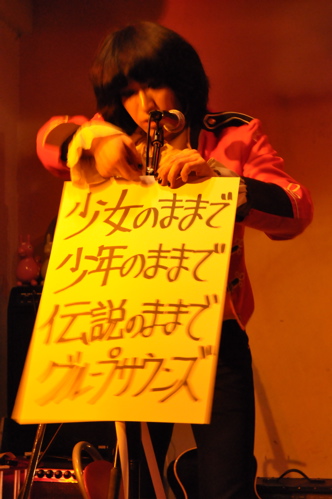 少女のままで
少年のままで
伝説のままで
グループサウンズ